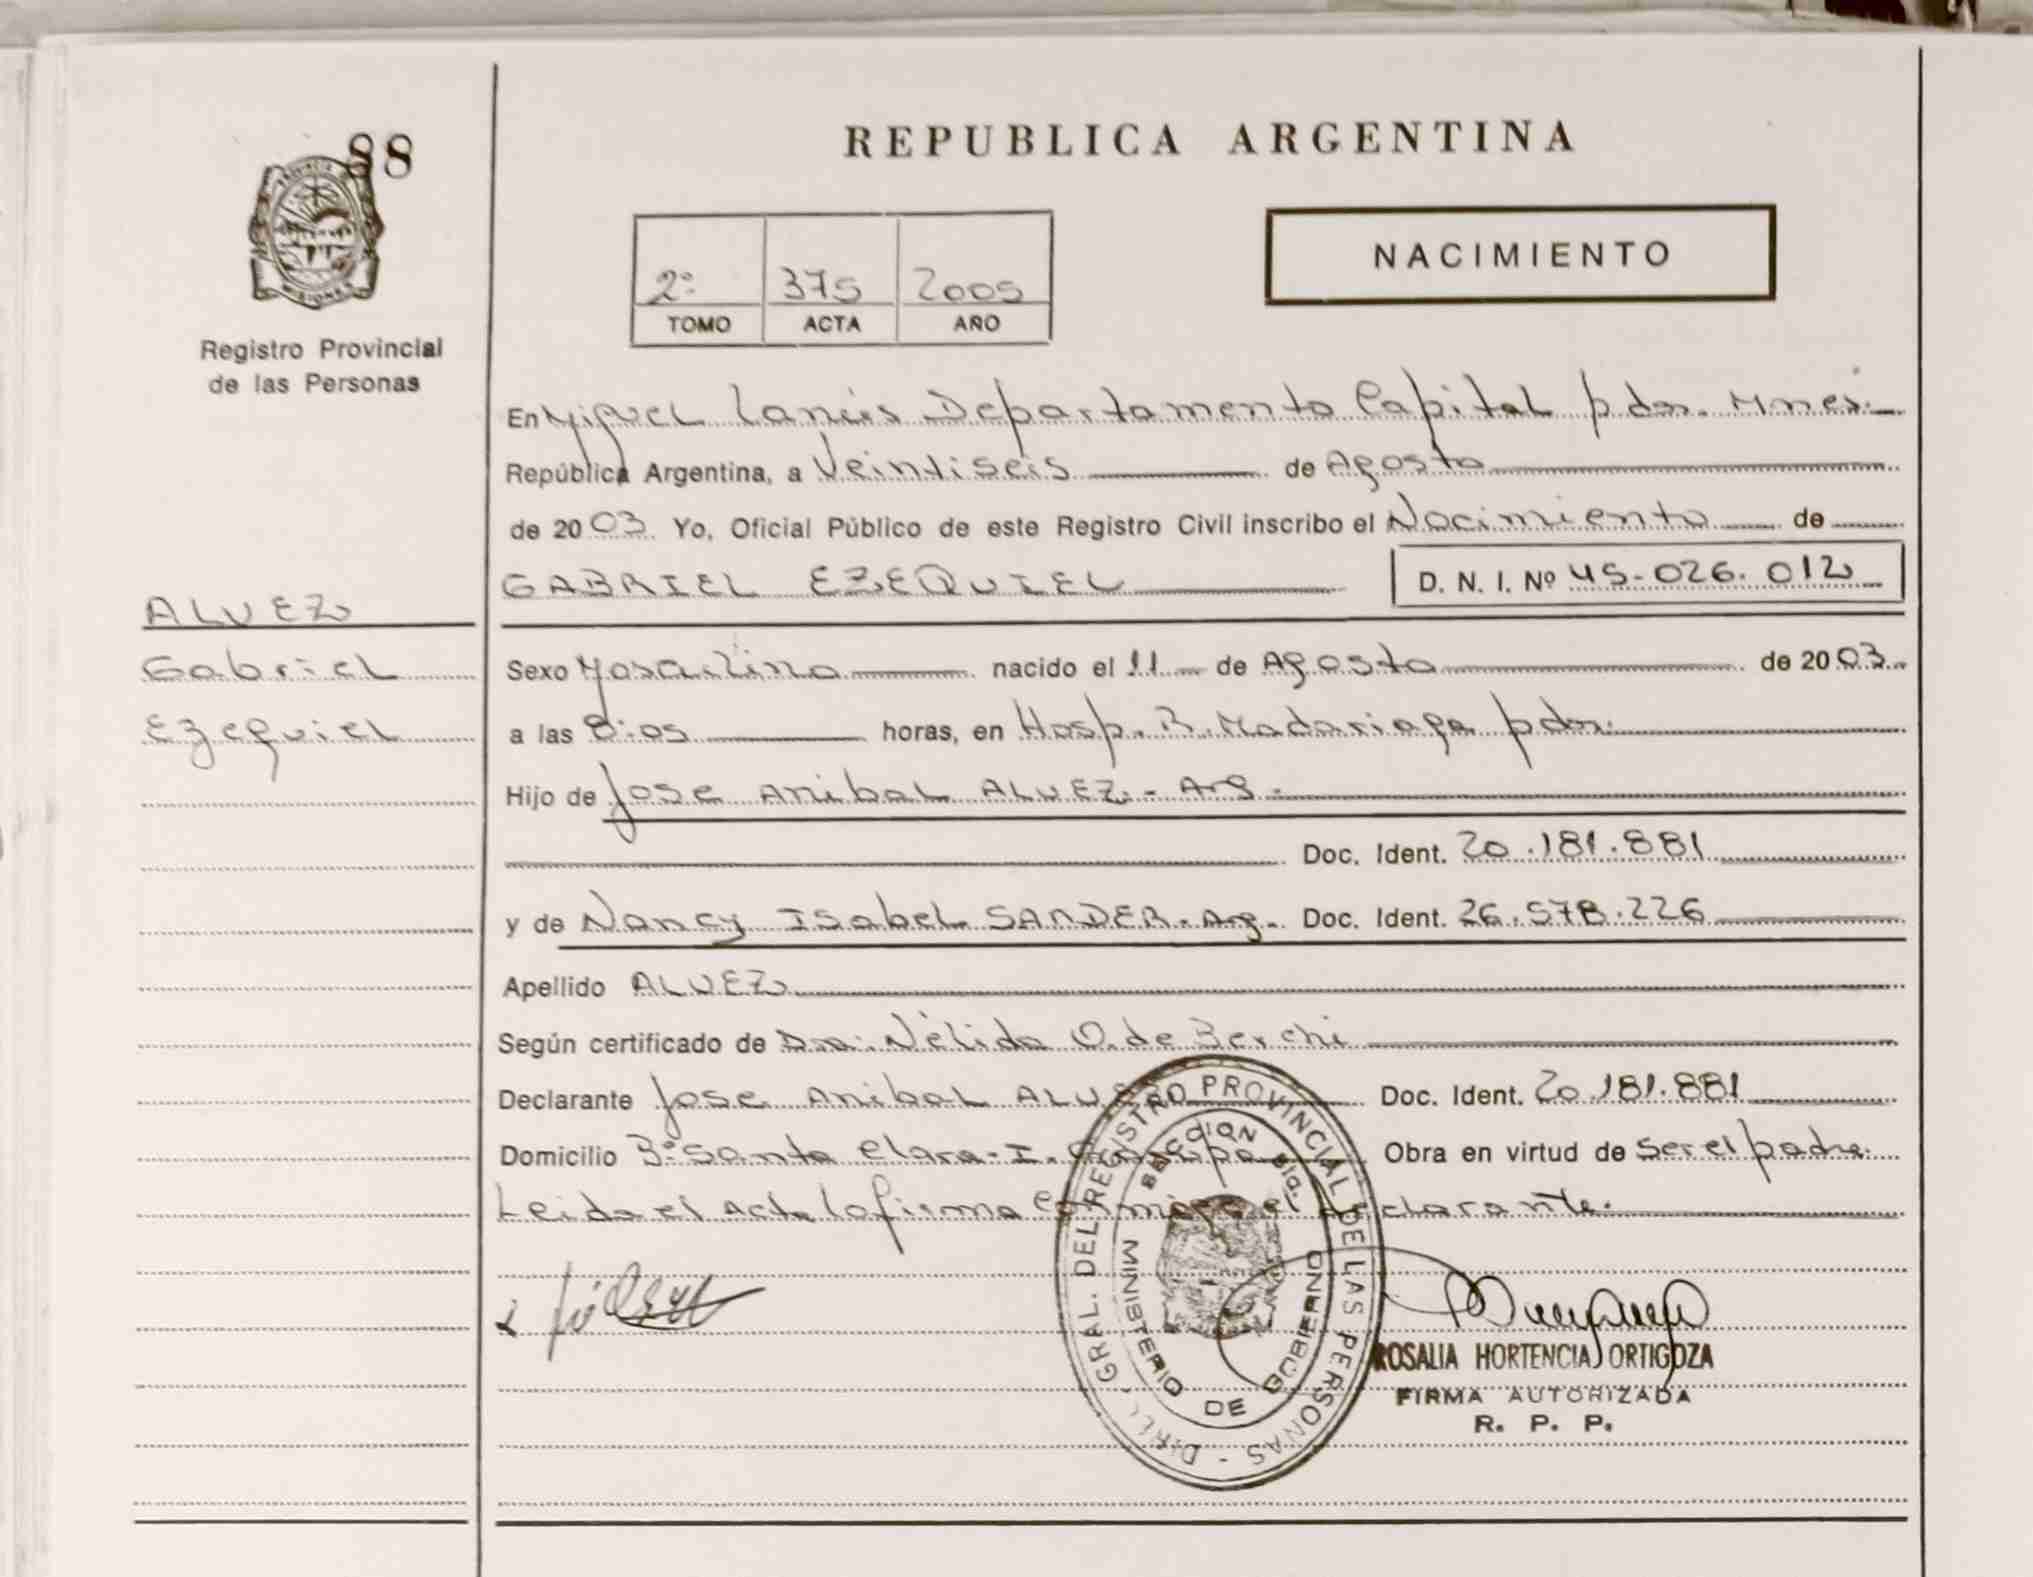 88
PROVINCIA DE
MISIONES
Registro Provincial
de las Personas
REPUBLICA ARGENTINA
NACIMIENTO
2º 375 2005
TOMO ACTA AÑO
En Miguel Lanús Departamento Capital pdas. Mnes.
República Argentina, a Veintiseis de Agosto
de 2003 Yo, Oficial Público de este Registro Civil inscribo el Nacimiento de
GABRIEL EZEQUIEL D. N. I. Nº 45-026.012
ALVEZ
Gabriel
Ezequiel
Sexo Masculino nacido el 11 de Agosto de 2003
a las 8:05 horas, en Hosp. R. Madariaga pdas.
Hijo de Jose Anibal ALVEZ.- Arg.
Doc. Ident. 20.181.881
y de Nancy Isabel SANDER. Arg. Doc. Ident. 26.578.226
Apellido ALVEZ
Según certificado de Dra. Nélida O. de Berchi
Declarante Jose Anibal ALVEZ Doc. Ident. 20.181.881
Domicilio Bº Santa Clara-I. Obra en virtud de Ser el padre.
Leida el Acta la firma conmigo el declarante.
DIREC. GRAL. DEL REGISTRO PROVINCIAL DE LAS PERSONAS -
SECCION
MINISTERIO DE GOBIERNO
ROSALIA HORTENCIA ORTIGOZA
FIRMA AUTORIZADA
R. P. P.